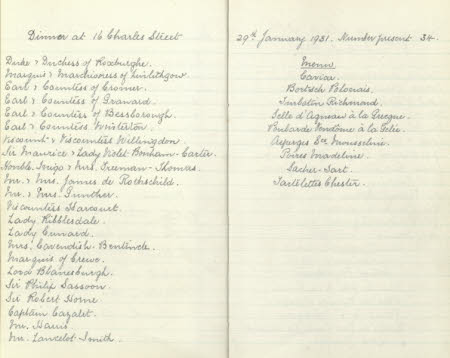 Dinner at 16 Charles Street
Duke & Duchess of Roxburghe.
Marquis & Marchioness of Linlithgow.
Earl & Countess of Cromer.
Earl & Countess of Granard.
Earl & Countess of Bessborough.
Earl & Countess Winterton.
Viscount & Viscountess Willingdon.
Sir Maurice & Lady Violet Bonham-Carter.
Honble. Inigo & Mrs. Freeman-Thomas.
Mr. & Mrs. James de Rothschild.
Mr. & Mrs. Gunther.
Viscountess Harcourt.
Lady Ribblesdale.
Lady Cunard.
Mrs. Cavendish-Bentinck.
Marquis of Crewe.
Lord Blanesburgh.
Sir Philip Sassoon.
Sir Robert Horne
Captain Cazalet.
Mr. Harris.
Mr. Lancelot-Smith.
29th January 1931. Number present 34.
Menu
Caviar.
Bortsch Polonais.
Turbotin Richmond.
Selle d'Agneau à la Grecque.
Poularde Vendôme à la Gelée.
Asperges Sce. Mousseline.
Poires Madeline.
Sacher-Tart.
Tartelettes Chester.